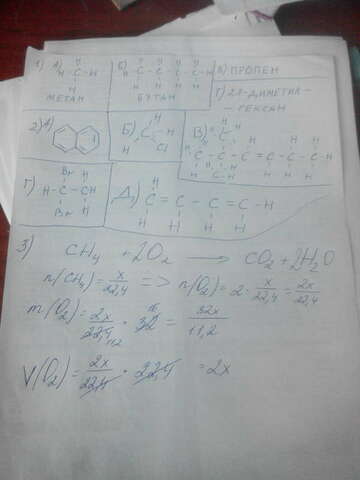 1) А) H
H-C-H
H
МЕТАН
Б) H H H H
H-C-C-C-C-H
H H H H
БУТАН
В) ПРОПЕН
Г) 2,2-ДИМЕТИЛ-
-ГЕКСАН
2) А)
Б) H
C
H Cl
В)
Г) Br H
H-C-C-H
Br H
Д) H
C=C-C=C-H
H H H H
3) CH₄ + 2O₂ → CO₂ + 2H₂O
n(CH₄) = x/22,4 => n(O₂) = 2 · x/22,4 = 2x/22,4
m(O₂) = 2x/22,4 · 32 = 32x/11,2
V(O₂) = 2x/22,4 · 22,4 = 2x